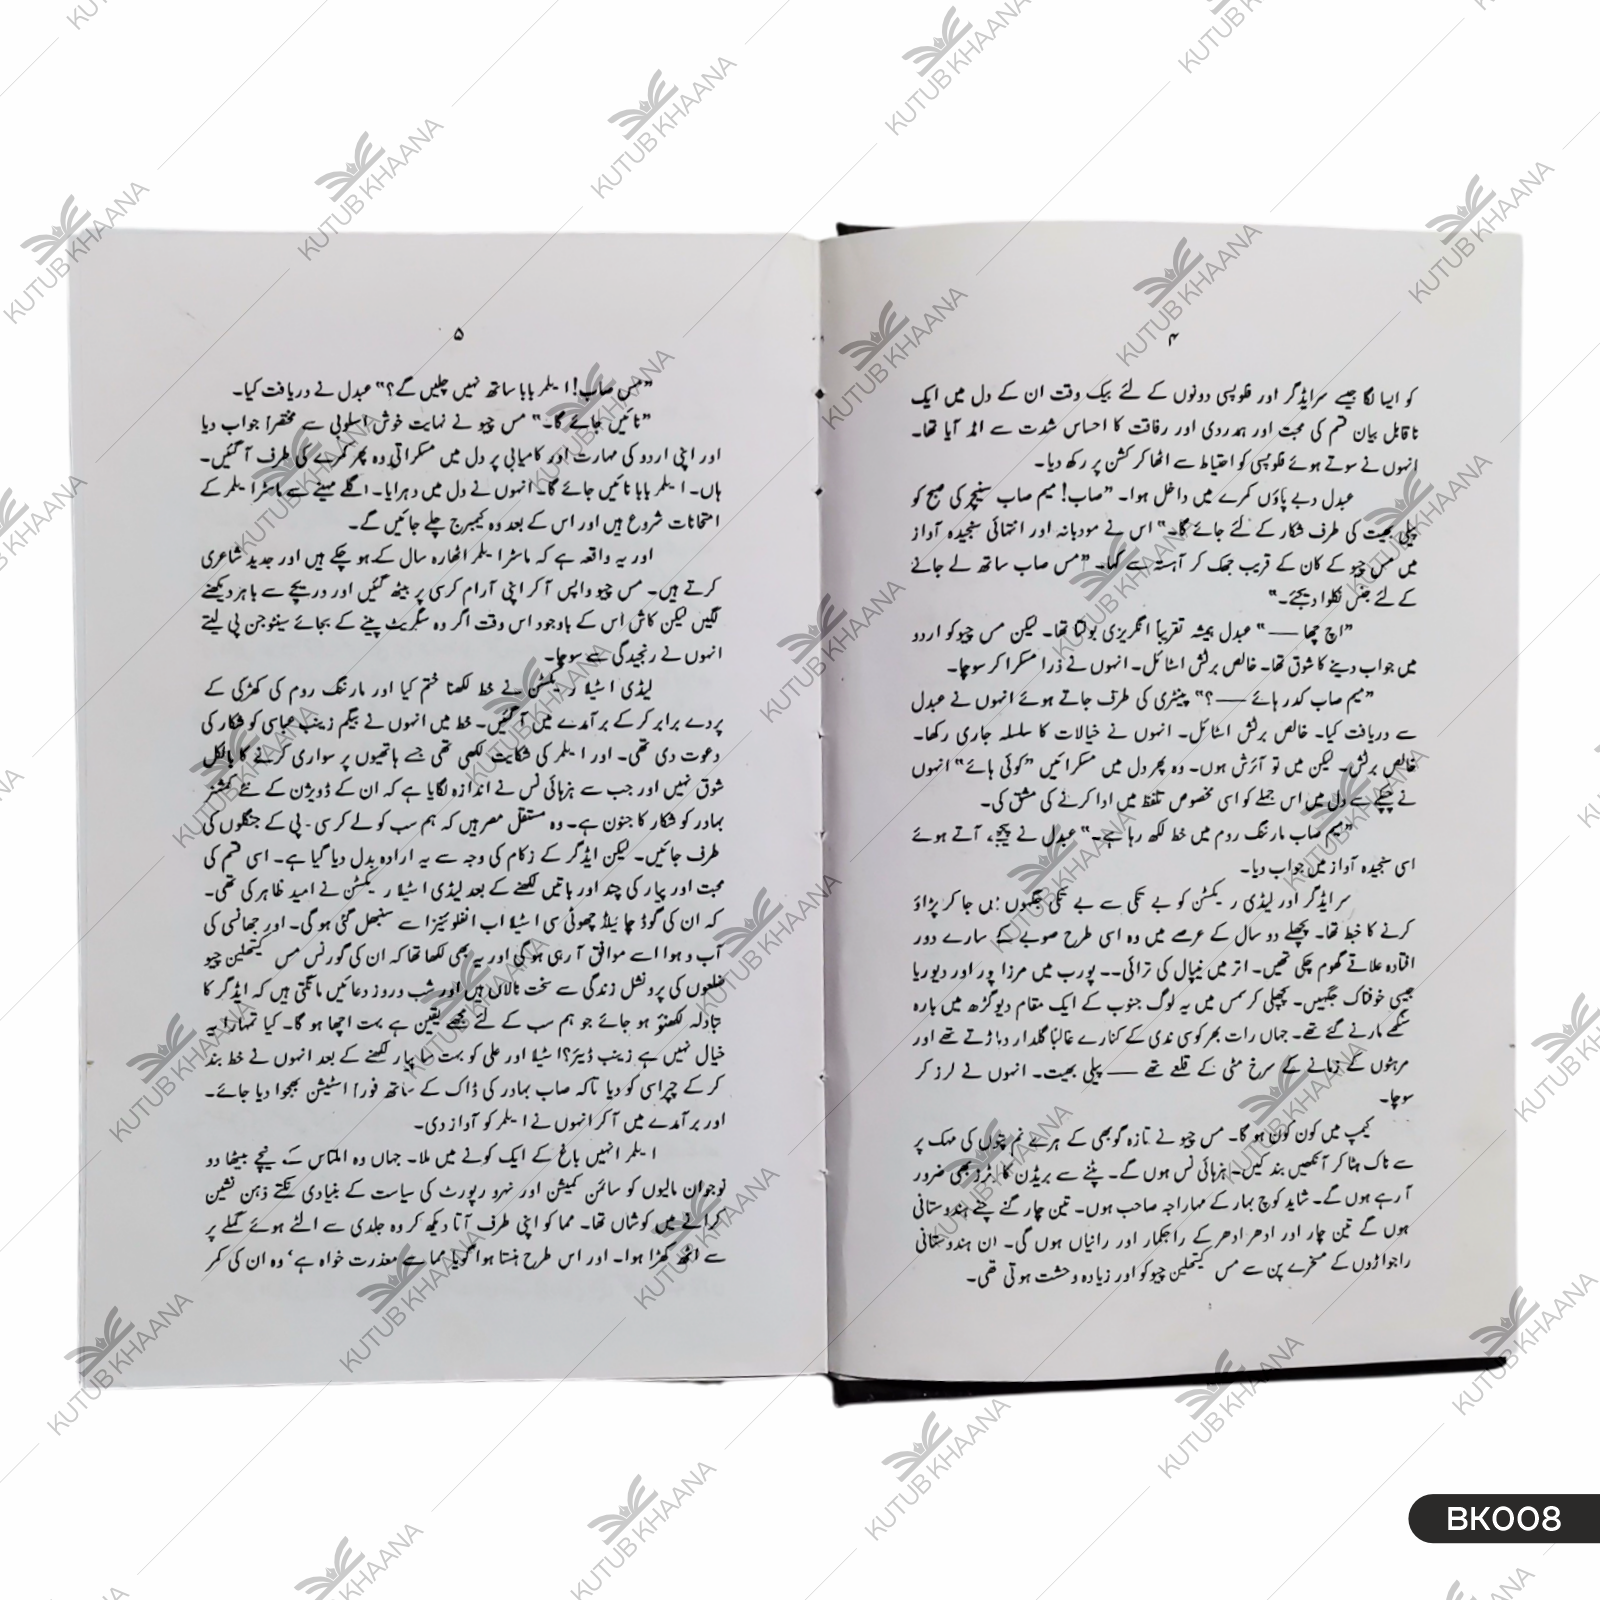 ۴
کو ایسا لگا جیسے سر ایڈگر اور فلوپسی دونوں کے لئے بیک وقت ان کے دل میں ایک
ناقابل بیان قسم کی محبت اور ہمدردی اور رفاقت کا احساس شدت سے امڈ آیا تھا۔
انہوں نے سوتے ہوئے فلوپسی کو احتیاط سے اٹھا کر کشن پر رکھ دیا۔
عبدل دبے پاؤں کمرے میں داخل ہوا۔ ”صاب! میم صاب سنیچر کی صبح کو
پیلی بھیت کی طرف شکار کے لئے جائے گا۔“ اس نے مودبانہ اور انتہائی سنجیدہ آواز
میں مس چیو کے کان کے قریب جھک کر آہستہ سے کہا۔ ”مس صاب ساتھ لے جانے
کے لئے جنس نکلوا دیجئے۔“
”اچ چھا —— “ عبدل ہمیشہ تقریباً انگریزی بولتا تھا۔ لیکن مس چیو کو اردو
میں جواب دینے کا شوق تھا۔ خالص برٹش اسٹائل۔ انہوں نے ذرا مسکرا کر سوچا۔
”میم صاب کدر ہائے ——؟“ پینٹری کی طرف جاتے ہوئے انہوں نے عبدل
سے دریافت کیا۔ خالص برٹش اسٹائل۔ انہوں نے خیالات کا سلسلہ جاری رکھا۔
خالص برٹش۔ لیکن میں تو آئرش ہوں۔ وہ پھر دل میں مسکرائیں ”کوئی ہائے“ انہوں
نے چپکے سے دل میں اس جملے کو اسی مخصوص تلفظ میں ادا کرنے کی مشق کی۔
”میم صاب مارننگ روم میں خط لکھ رہا ہے۔“ عبدل نے پیچھے آتے ہوئے
اسی سنجیدہ آواز میں جواب دیا۔
سر ایڈگر اور لیڈی ریکسٹن کو بے تکی سے بے تکی جگہوں میں جا کر پڑاؤ
کرنے کا خبط تھا۔ پچھلے دو سال کے عرصے میں وہ اسی طرح صوبے کے سارے دور
افتادہ علاقے گھوم چکی تھیں۔ اتر میں نیپال کی ترائی۔۔ پورب میں مرزا پور اور دیوریا
جیسی خوفناک جگہیں۔ پچھلی کرسمس میں یہ لوگ جنوب کے ایک مقام دیوگڑھ میں بارہ
سنگھے مارنے گئے تھے۔ جہاں رات بھر کوسی ندی کے کنارے غالباً گلدار دہاڑتے تھے اور
مرہٹوں کے زمانے کے سرخ مٹی کے قلعے تھے —— پیلی بھیت۔ انہوں نے لرز کر
سوچا۔
کیمپ میں کون کون ہو گا۔ مس چیو نے تازہ گوبھی کے ہرے نم پتوں کی مہک پر
سے ناک ہٹا کر آنکھیں بند کیں۔ ہزہائی نس ہوں گے۔ پٹنے سے بریڈن کا برڈز بھی ضرور
آ رہے ہوں گے۔ شاید کوچ بہار کے مہاراجہ صاحب ہوں۔ تین چار گنے چنے ہندوستانی
ہوں گے تین چار اور ادھر ادھر کے راجکمار اور رانیاں ہوں گی۔ ان ہندوستانی
راجواڑوں کے مسخرے پن سے مس کیتھلین چیو کو اور زیادہ وحشت ہوتی تھی۔
۵
”مس صاب! ایلمر بابا ساتھ نہیں چلیں گے؟“ عبدل نے دریافت کیا۔
”نائیں جائے گا۔“ مس چیو نے نہایت خوش اسلوبی سے مختصراً جواب دیا
اور اپنی اردو کی مہارت اور کامیابی پر دل میں مسکراتی وہ پھر کمرے کی طرف آ گئیں۔
ہاں۔ ایلمر بابا نائیں جائے گا۔ انہوں نے دل میں دہرایا۔ اگلے مہینے سے ماسٹر ایلمر کے
امتحانات شروع ہیں اور اس کے بعد وہ کیمبرج چلے جائیں گے۔
اور یہ واقعہ ہے کہ ماسٹر ایلمر اٹھارہ سال کے ہو چکے ہیں اور جدید شاعری
کرتے ہیں۔ مس چیو واپس آ کر اپنی آرام کرسی پر بیٹھ گئیں اور دریچے سے باہر دیکھنے
لگیں لیکن کاش اس کے باوجود اس وقت اگر وہ سگریٹ پینے کے بجائے سینٹوجن پی لیتے
انہوں نے رنجیدگی سے سوچا۔
لیڈی اسٹیلا ریکسٹن نے خط لکھنا ختم کیا اور مارننگ روم کی کھڑکی کے
پردے برابر کر کے برآمدے میں آ گئیں۔ خط میں انہوں نے بیگم زینب عباسی کو شکار کی
دعوت دی تھی۔ اور ایلمر کی شکایت لکھی تھی جسے ہاتھیوں پر سواری کرنے کا بالکل
شوق نہیں اور جب سے ہزہائی نس نے اندازہ لگایا ہے کہ ان کے ڈویژن کے نئے کمشنر
بہادر کو شکار کا جنون ہے۔ وہ مستقل مصر ہیں کہ ہم سب کو لے کر سی۔پی کے جنگلوں کی
طرف جائیں۔ لیکن ایڈگر کے زکام کی وجہ سے یہ ارادہ بدل دیا گیا ہے۔ اسی قسم کی
محبت اور پیار کی چند اور باتیں لکھنے کے بعد لیڈی اسٹیلا ریکسٹن نے امید ظاہر کی تھی۔
کہ ان کی گوڈ چائیلڈ چھوٹی سی اسٹیلا اب انفلوئنزا سے سنبھل گئی ہو گی۔ اور جھانسی کی
آب و ہوا اسے موافق آ رہی ہو گی اور یہ بھی لکھا تھا کہ ان کی گورنس مس کیتھلین چیو
ضلعوں کی پرونشل زندگی سے سخت نالاں ہیں اور شب و روز دعائیں مانگتی ہیں کہ ایڈگر کا
تبادلہ لکھنؤ ہو جائے جو ہم سب کے لئے مجھے یقین ہے بہت اچھا ہو گا۔ کیا تمہارا یہ
خیال نہیں ہے زینب ڈیئر؟ اسٹیلا اور علی کو بہت سا پیار لکھنے کے بعد انہوں نے خط بند
کر کے چپراسی کو دیا تاکہ صاب بہادر کی ڈاک کے ساتھ فوراً اسٹیشن بھجوا دیا جائے۔
اور برآمدے میں آ کر انہوں نے ایلمر کو آواز دی۔
ایلمر انہیں باغ کے ایک کونے میں ملا۔ جہاں وہ املتاس کے نیچے بیٹھا دو
نوجوان مالیوں کو سائمن کمیشن اور نہرو رپورٹ کی سیاست کے بنیادی نکتے ذہن نشین
کرانے میں کوشاں تھا۔ مما کو اپنی طرف آتا دیکھ کر وہ جلدی سے الٹے ہوئے گملے پر
سے اٹھ کھڑا ہوا۔ اور اس طرح ہنستا ہوا گویا مما سے معذرت خواہ ہے‘ وہ ان کی کمر
KUTUB KHAANA
BK008